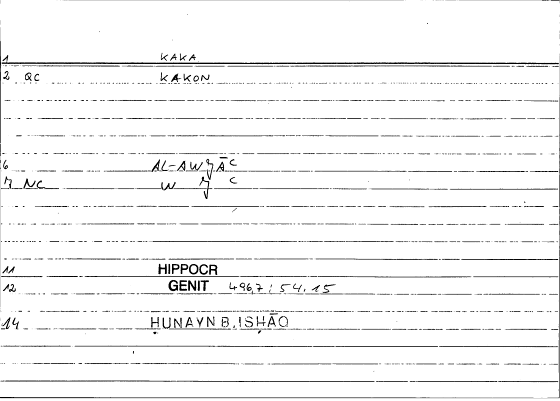 1 KAKA
2 QC KAKON
6 AL-AWǧĀ ͨ
7 NC W ǧ ͨ
11 HIPPOCR
12 GENIT 496,7 ; 54.15
14 ḤUNAYN B. ISḤĀQ